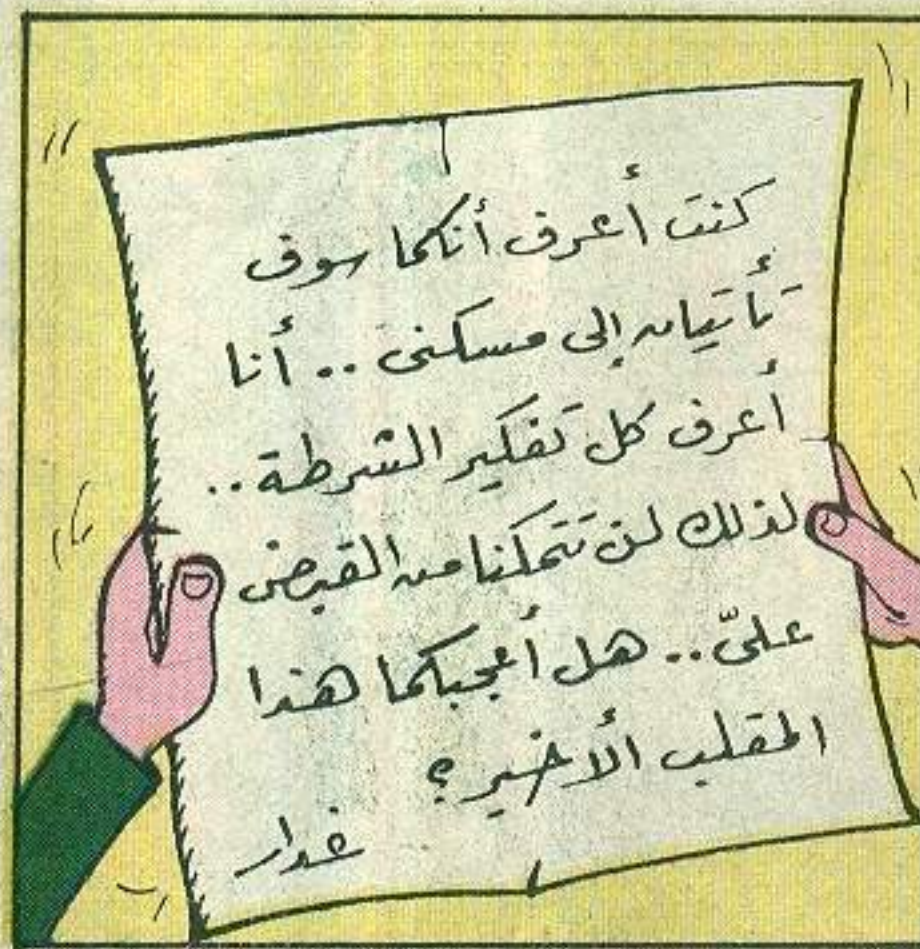 كنت أعرف أنكما سوف
تأتيان إلى مسكنى .. أنا
أعرف كل تفكير الشرطة ..
لذلك لن تتمكنا من القبض
علىّ .. هل أعجبكما هذا
المقلب الأخير ؟
غدار